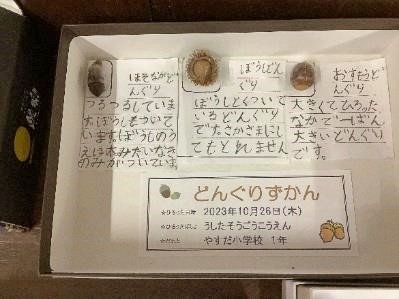 ほそながどんぐり
つるつるしていま
すぼうしもついて
いますぼうしのう
えは木みたいなき
のみがついています。
ぼうしどんぐり
ぼうしとくっついて
いるどんぐり
です。さかさまにし
てもとれません
おすもうどんぐり
大きくてひろった
なかで一ばん
大きいどんぐり
です。
どんぐりずかん
☆ひろった日時 2023年10月26日(木)
☆ひろったばしょ うしたそうごうこうえん
やすだ小学校 1年